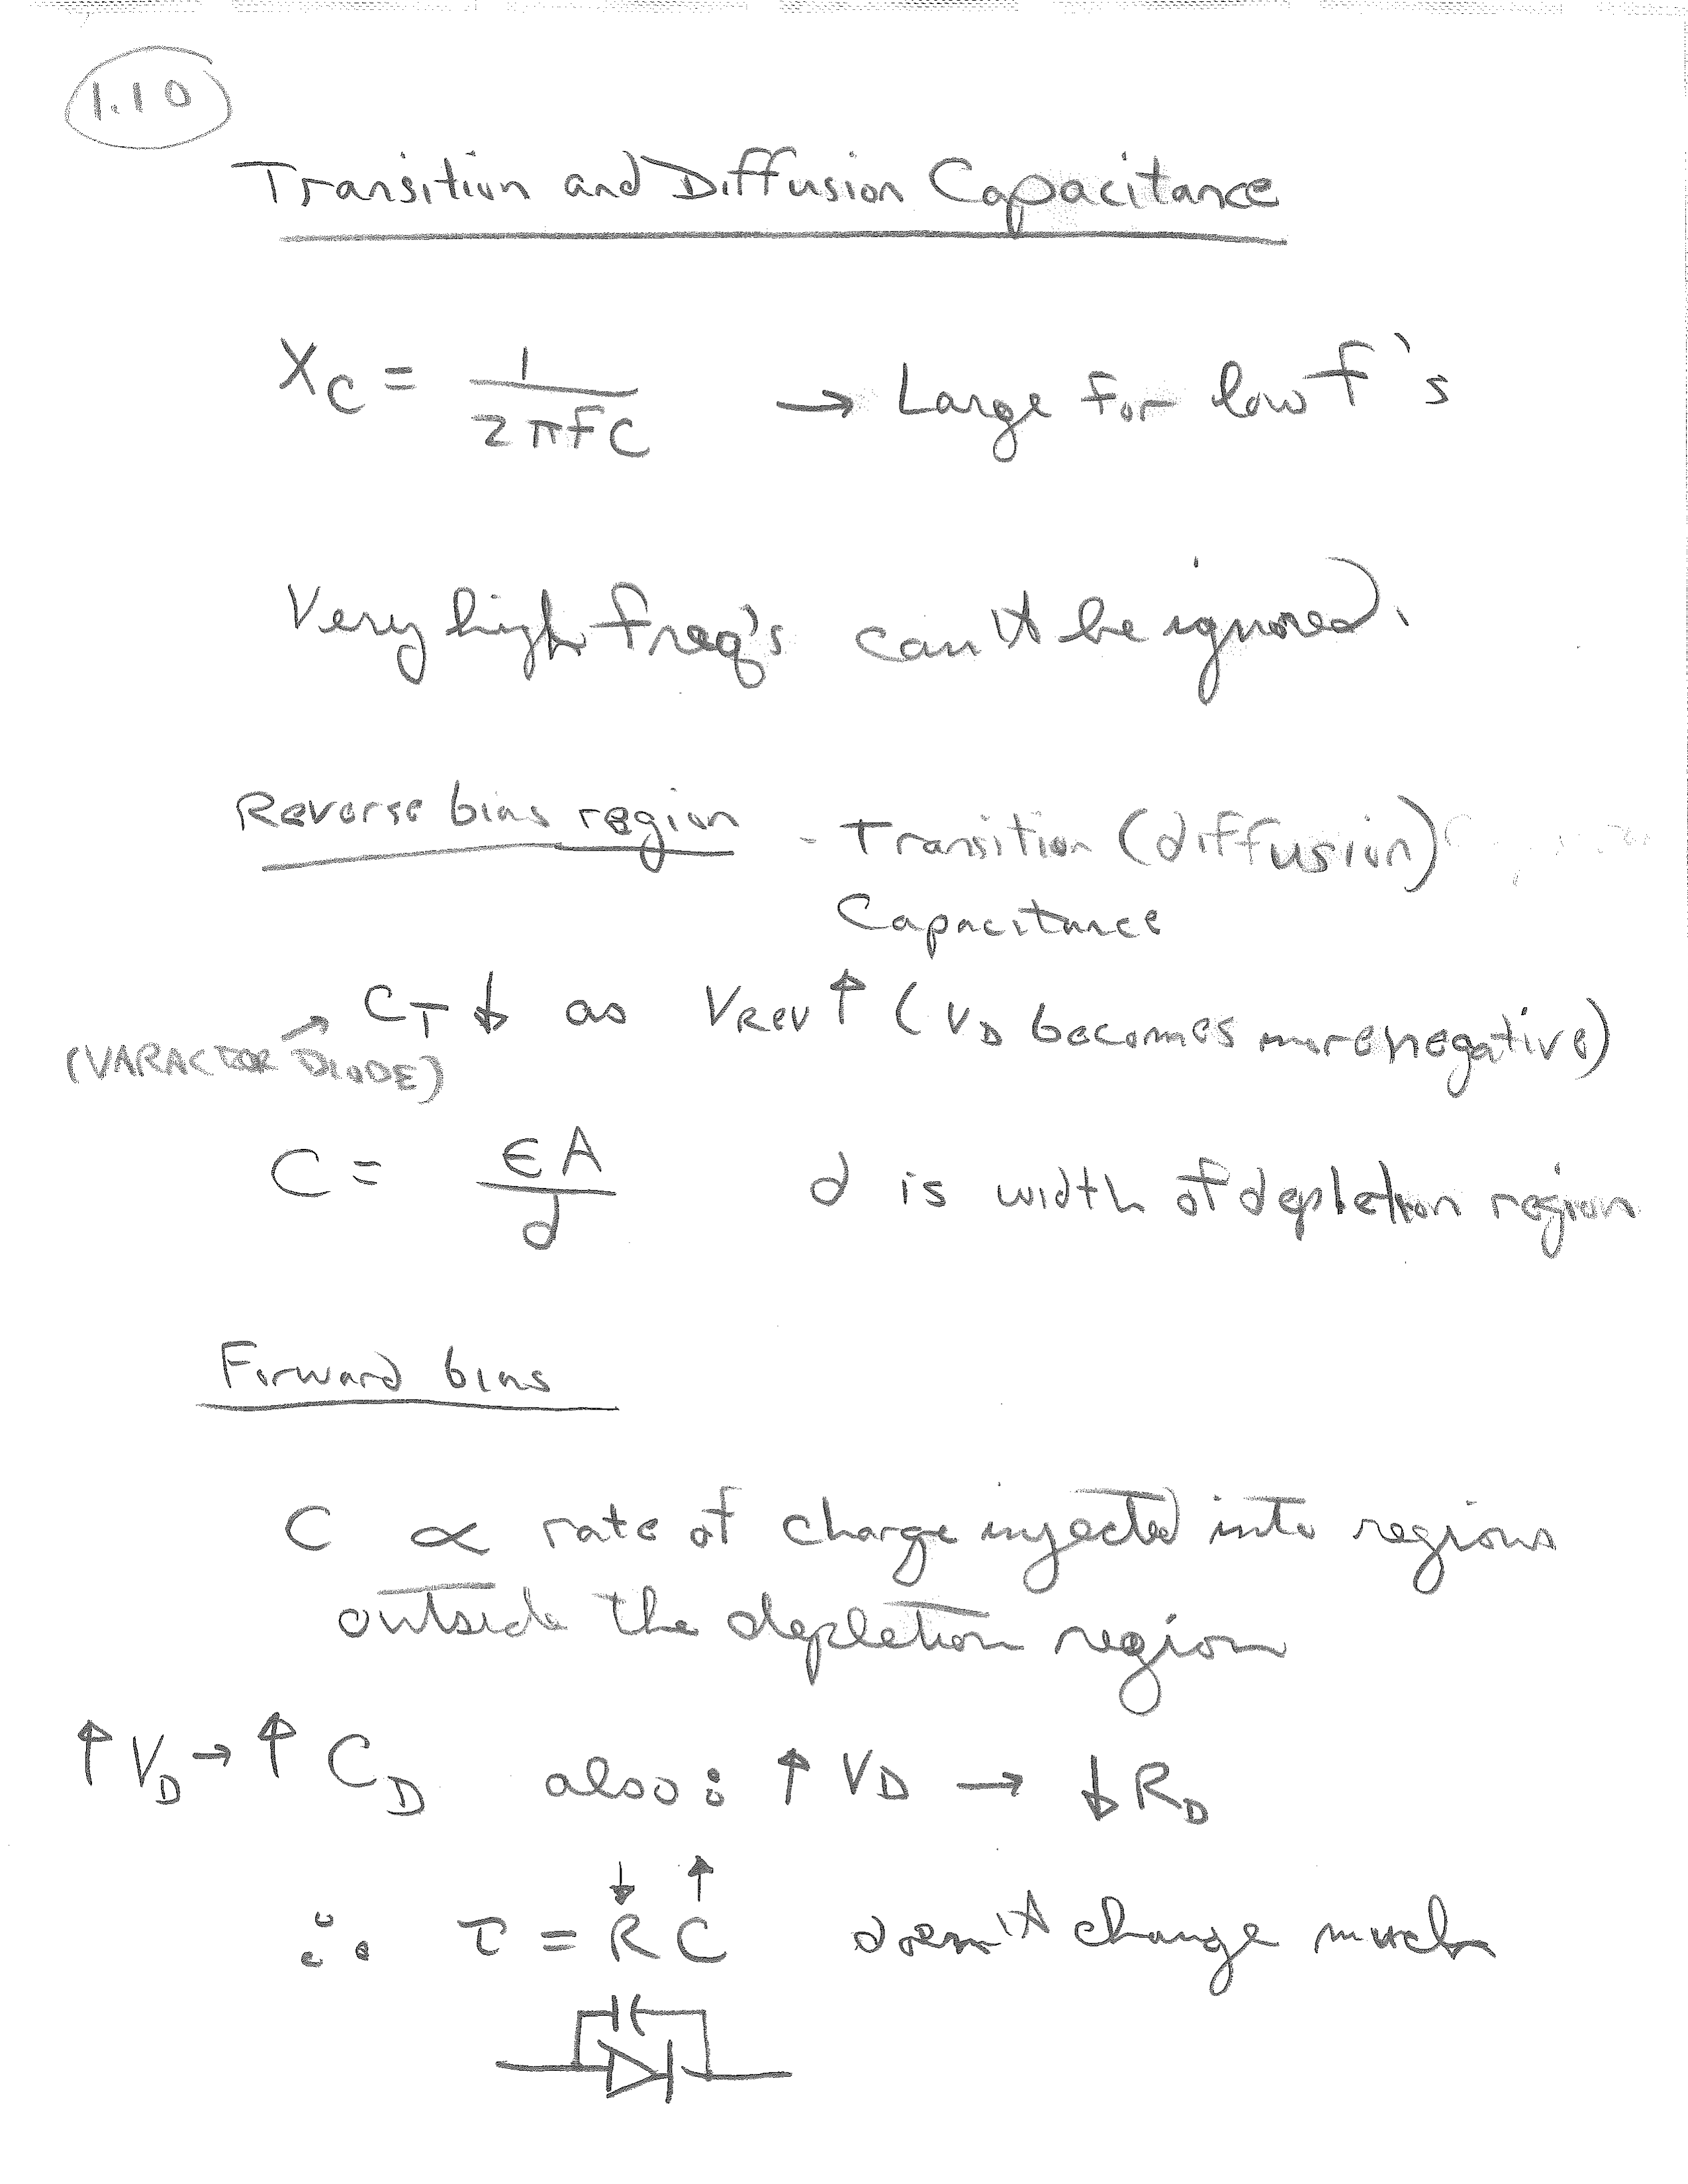 1.10
Transition and Diffusion Capacitance
X_C = 1 / (2πfC) → Large for low f's
Very high freq's can't be ignored.
Reverse bias region - Transition (diffusion)
Capacitance
C_T ↓ as V_Rev ↑ (V_D becomes more negative)
(VARACTOR DIODE)
C = ϵA / d d is width of depletion region
Forward bias
C ∝ rate of charge injected into regions
outside the depletion region
↑ V_D → ↑ C_D also: ↑ V_D → ↓ R_D
∴ τ = R↓ C↑ doesn't change much